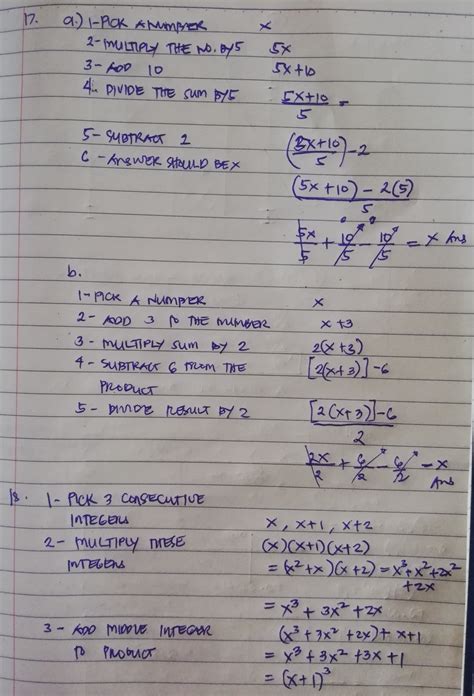 17. a.) 1-PICK A NUMBER x
2-MULTIPLY THE NO. BY 5 5x
3- ADD 10 5x+10
4. DIVIDE THE SUM BY 5 (5x+10)/5 =
5- SUBTRACT 2 (5x+10)/5 - 2
6 - ANSWER SHOULD BE X
((5x+10) - 2(5))/5
5x/5 + 10/5 - 10/5 = x Ans
b.
1-PICK A NUMBER x
2- ADD 3 TO THE NUMBER x+3
3 - MULTIPLY SUM BY 2 2(x+3)
4 - SUBTRACT 6 FROM THE [2(x+3)]-6
PRODUCT
5 - DIVIDE RESULT BY 2 ([2(x+3)]-6)/2
2x/2 + 6/2 - 6/2 - x
Ans
18. 1- PICK 3 CONSECUTIVE
INTEGERS x, x+1, x+2
2- MULTIPLY THESE (x)(x+1)(x+2)
INTEGERS = (x²+x)(x+2) = x³+x²+2x²
+2x
= x³ + 3x² + 2x
3 - ADD MIDDLE INTEGER (x³+3x²+2x)+x+1
TO PRODUCT = x³+3x²+3x+1
= (x+1)³